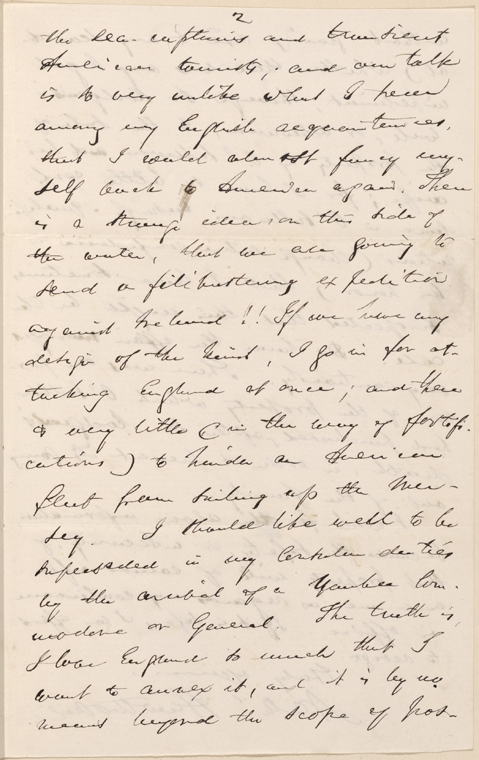 2
the sea-captains and transient
American tourists; and our talk
is so very unlike what I hear
among my English acquaintances,
that I could almost fancy my-
self back to America again. There
is a strange idea, on this side of
the water, that we are going to
send a filibustering expedition
against Ireland!! If we have any
design of the kind, I go in for at-
tacking England at once; and there
is very little (in the way of fortifi-
cations) to hinder an American
fleet from sailing up the Mer-
sey. I should like well to be
superseded in my Consular duties
by the arrival of a Yankee Com-
modore or General. The truth is,
I love England so much that I
want to annex it, and it is by no
means beyond the scope of pos-